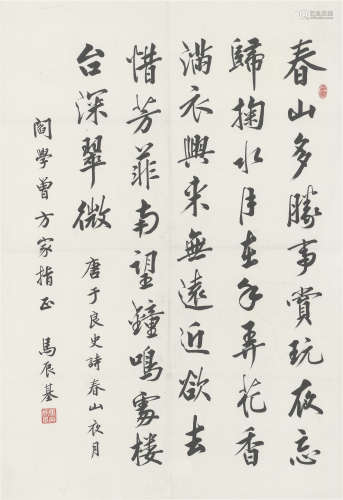 春山多勝事賞玩夜忘
歸掬水月在手弄花香
滿衣興來無遠近欲去
惜芳菲南望鐘鳴處樓
台深翠微
唐于良史詩春山夜月
閻學曾方家指正
馬辰基